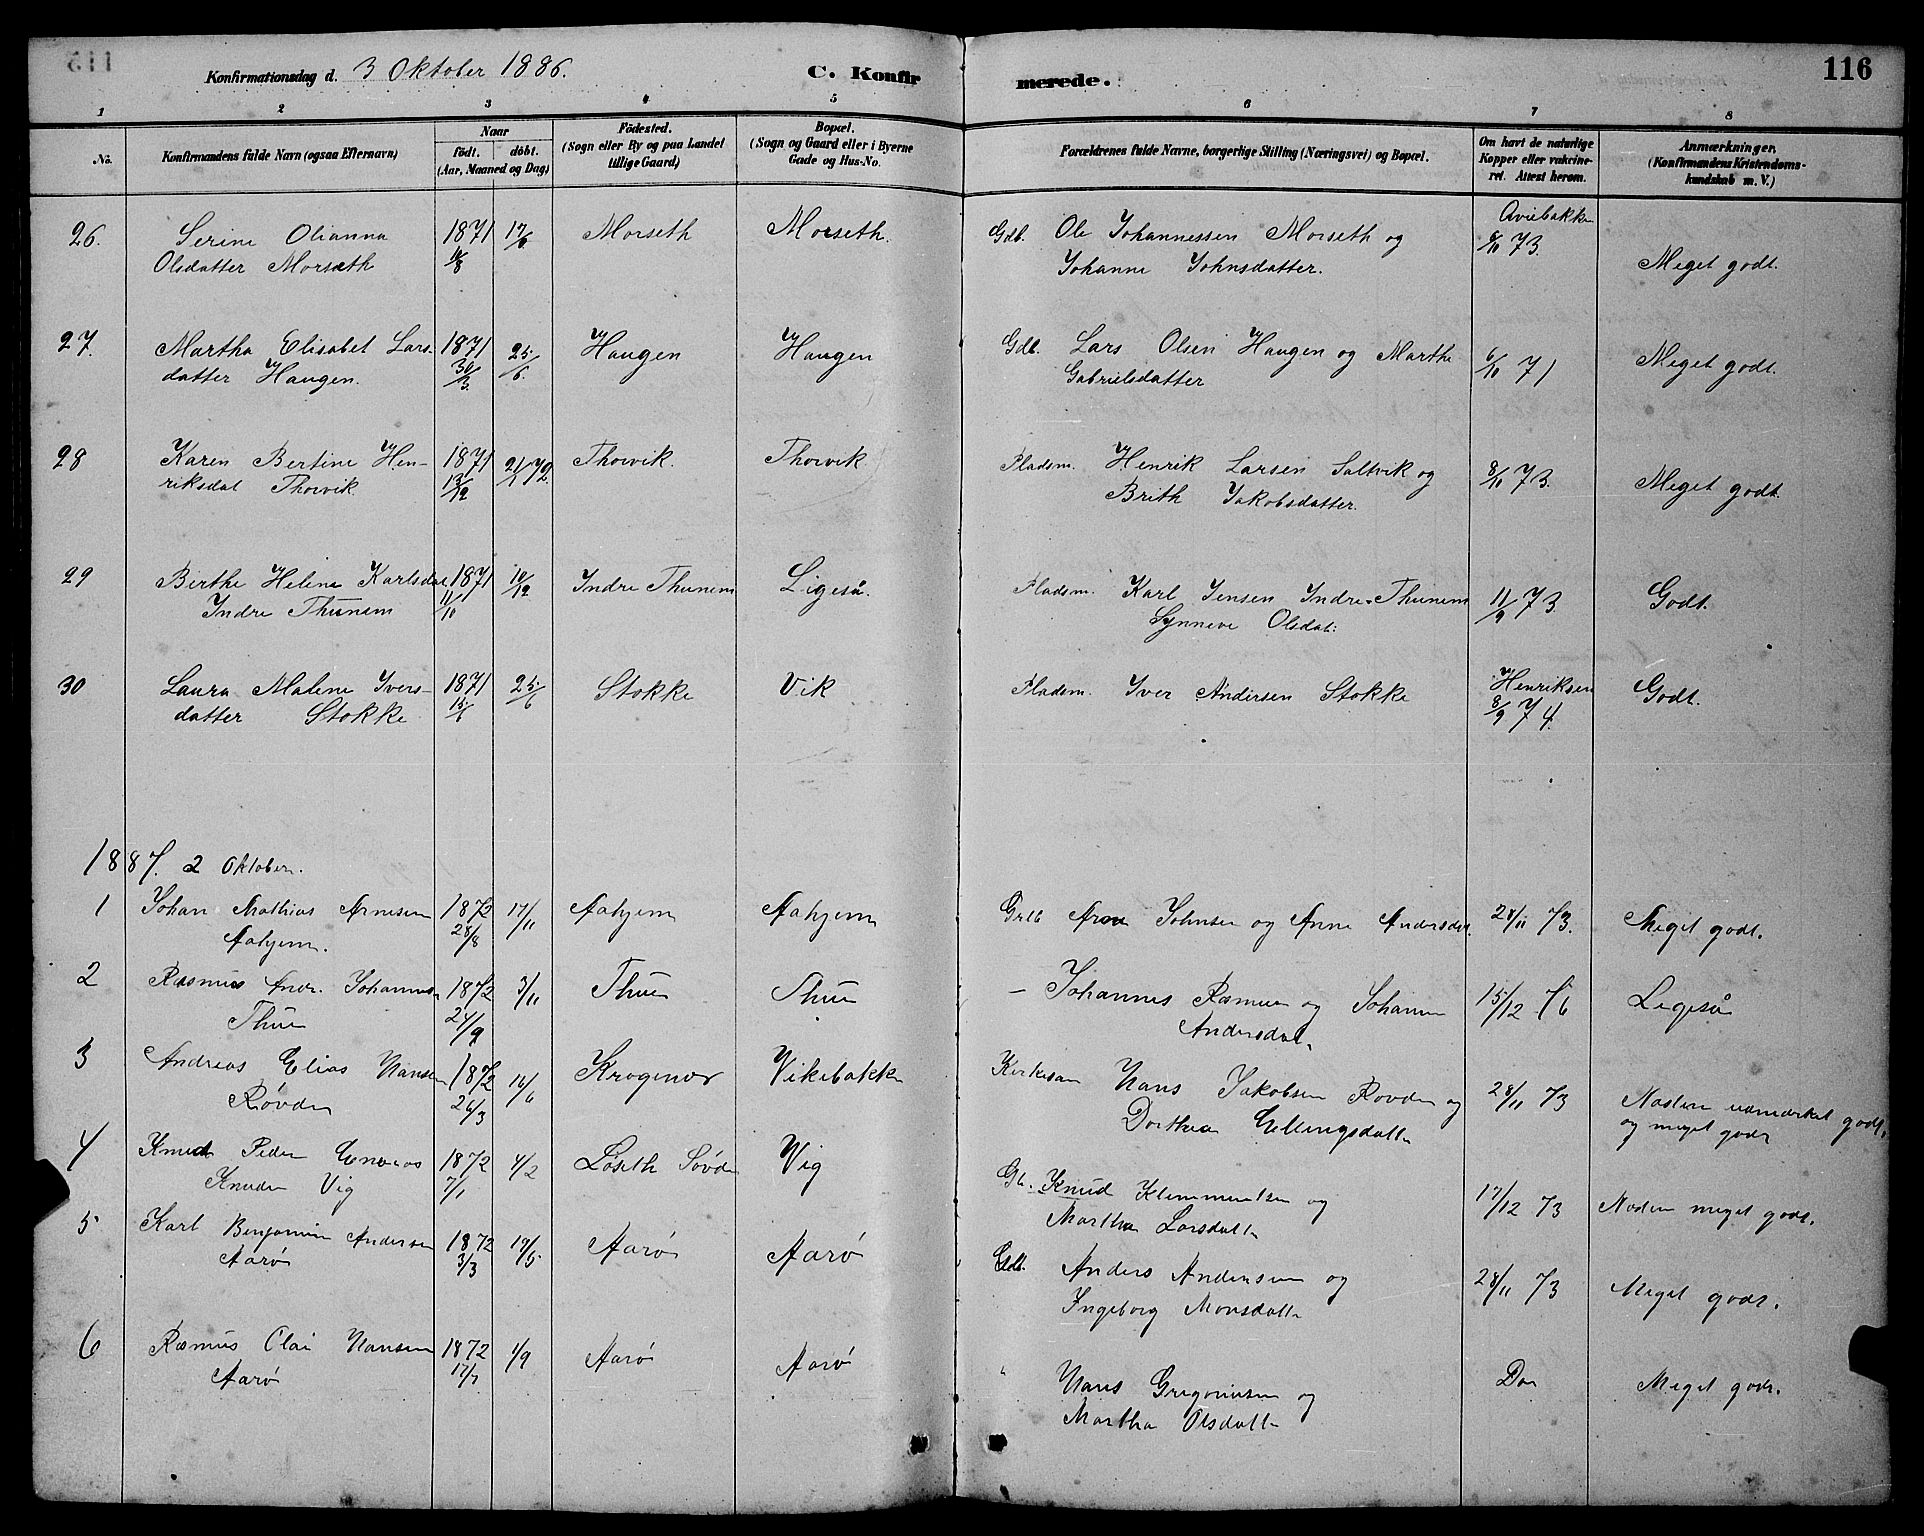 Konfirmationsdag d. 3 Oktober 1886. C. Konfirmerede. 116
1 2 3 4 5 6 7 8
No. Konfirmandens fulde Navn (ogsaa Efternavn) Naar födt. döbt. (Aar, Maaned og Dag) Födested. (Sogn eller By og paa Landet tillige Gaard) Bopæl. (Sogn og Gaard eller i Byerne Gade og Hus-No. Forældrenes fulde Navne, borgerlige Stilling (Næringsvei) og Bopæl. Om havt de naturlige Kopper eller vakcineret. Attest herom. Anmærkninger. (Konfirmandens Kristendomskundskab m. V.)
26. Serine Olianna 1871 17/6 Morseth Morseth. Gdb. Ole Johannessen Morseth og
Olsdatter Morseth Johanne Johnsdatter. 8/11 73. Meget godt.
27. Martha Elisabet Lars- 1871 25/6. Haugen Haugen Gdb. Lars Olsen Haugen og Marthe 6/10 71 Meget godt.
datter Haugen. 30/3. Gabrielsdatter
28 Karen Bertine Hen- 1871 21/1 72. Thorvik. Thorvik Pladsm. Henrik Larsen Saltvik og 8/11 73. Meget godt.
riksdat Thorvik 13/12 Brith Jakobsdatter.
29 Birthe Helene Karlsdat 1871 10/12 Indre Thunem Ligeså. Pladsm. Karl Jensen Indre Thunem 11/9 73 Godt.
Indre Thunem 11/10 Synneve Olsdat:
30 Laura Malene Ivers- 1871 25/6 Stokke Vik Pladsm. Iver Andersen Stokke Henriksen Godt.
datter Stokke 8/9 74.
1887. 2 Oktober.
1 Johan Mathias Arnesen 1872 17/11 Aahjem Aahjem Arne Johnsen og Anne Andersdat. 28/11 73. Meget godt.
Aahjem. 28/8
2 Rasmus Andr. Johannes 1872 3/11 Thue Thue – Johannes Rasmus og Johanne 15/12 76 Ligeså
Thue 24/9 Andersdat.
3 Andreas Elias Hansen 1872 16/6 Vikebakke Hans Jakobsen Røvde og 28/11 73 Næsten udmærket godt.
Røvde 26/3 Dorthea Ellingsdatt og meget godt
4 Knud Peder 1872 4/2 Løseth Søvde Vig Knud Klemmentsen og 17/12 73 Næsten meget godt.
Knudsen Vig 7/1 Martha Larsdatt
5 Karl Benjamin Andersen 1872 19/5 Aarø Aarø Gdb. Anders Andersen og 28/11 73 Meget godt.
Aarø 3/3 Ingeborg Monsdatt
6 Rasmus Olai Hansen 1872 1/9 Aarø Aarø " Hans Gregoriusen og Do Meget godt.
Aarø 17/7 Martha Olsdatt